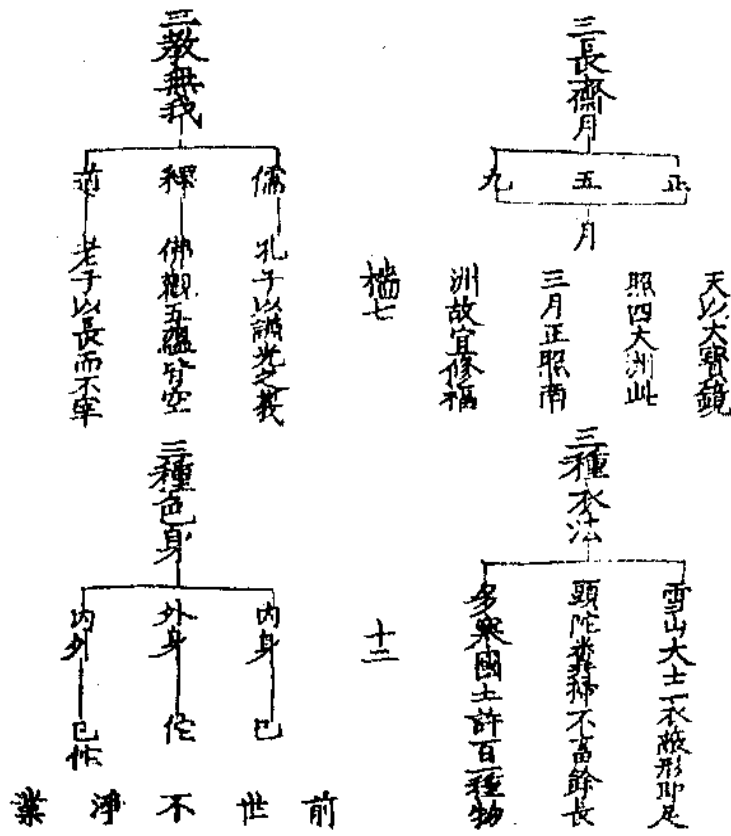 三長齋月
正
五
九
月
天以大寶鏡
照四大洲此
三月正照南
洲故宜修福
三種衣法
雪山大士一衣蔽形即足
頭陀糞掃不畜餘長
多寒國土許百一種物
七
三教無我
儒 孔子以誠之義
釋 佛觀五蘊皆空
道 老子以長而不宰
三種色身
内身 已
外身 佗
内外 已佗
前世不淨業